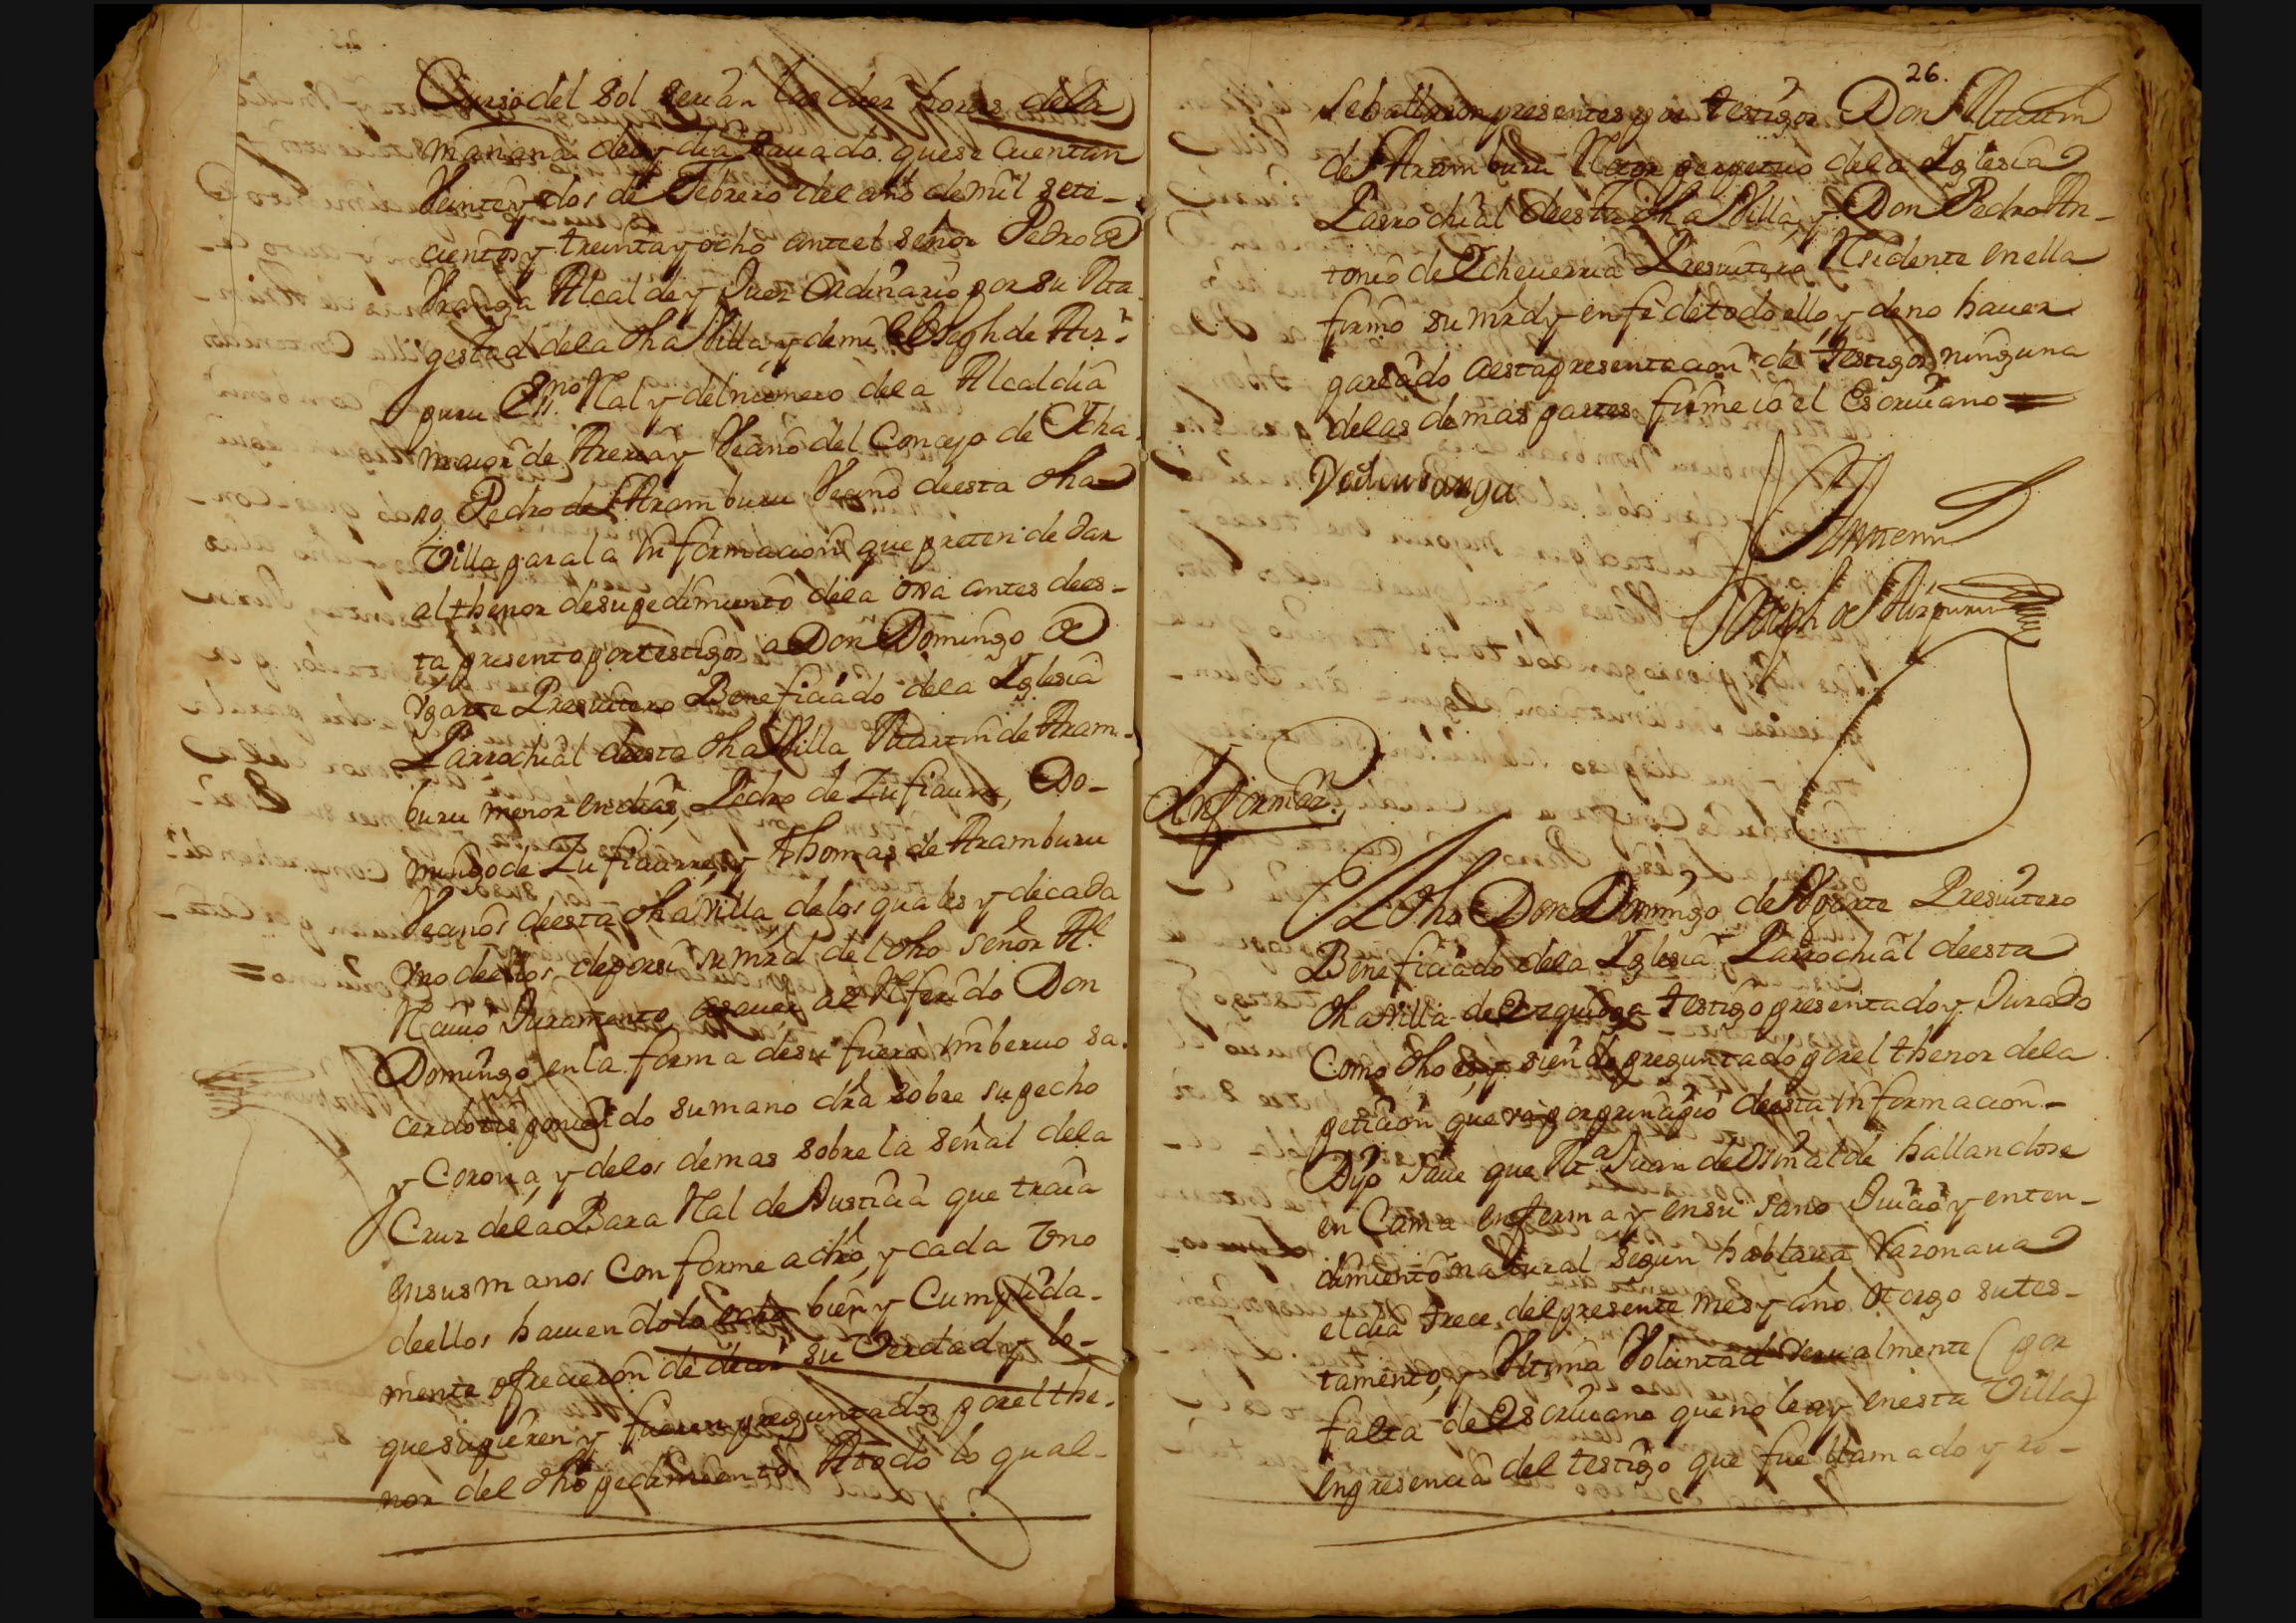 Curso del Sol serian las diez horas dela
mañana deoy dia savado que se cuentan
Veinte y dos de Febrero del año de mil sete-
cientos y treinta y ocho ante el señor Pedro de
Vranga Alcalde y Juez Ordinario por su Ma-
gestad dela dha Villa, y de mi Joseph de Aiz-
puru Ess.no Real y del numero dela Alcaldia
maior de Areria y Vecino del Concejo de Icha-
so, Pedro de Aramburu Vecino deesta dha
Villa para la informacion que pretende dar
al thenor de su pedimiento dela oja antes dees-
ta presento por testigos a Don Domingo de
Ygarte Presvitero Beneficiado dela Iglesia
Parrochial deesta dha Villa, Martin de Aram-
buru menor en dias, Pedro de Zufiaurre, Do-
mingo de Zufiaurre, y Thomas de Aramburu
Vecinos deesta dha Villa delos quales y de cada
Vno deellos, de por si su mrd del dho señor Al.e
Reciuio Juramento asauer al Referido Don
Domingo en la forma de su fuero in berbo sa-
cerdotis poniendo su mano dra sobre su pecho
y Corona, y delos demas sobre la señal dela
Cruz dela Bara Real de Justicia que traia
en sus manos Conforme a dro, y cada Vno
deellos hauiendolo echo bien y Cumplida-
mente ofrecieron de decir su Verdad y lo-
que supieren y fueren preguntados por el the-
nor del dho pedimiento. A todo lo qual-
26.
se hallaron presentes por testigos Don Martin
de Aramburu Retor perpetuo dela Iglesia
Parrochial deesta dha Villa, y Don Pedro An-
tonio de Echeuerria Presvitero Residente en ella
firmo su mrd y en fe de todo ello, y de no hauer
pareçido a esta presentacion de testigos ninguna
delas demas partes firme io el Escriuano =
Pedro Vranga
Ante mi
Joseph de Aizpuru
Informaz.n
El dho Don Domingo de Ygarte Presvitero
Beneficiado dela Iglesia Parrochial deesta
dha Villa de Ezquioga testigo presentado y Jurado
Como dho es, y siendo preguntado por el thenor dela
peticion que va por prinzipio deesta informacion-
Dijo saue que M.a Juan de Osinalde hallandose
en Cama enferma y en su sano Juicio y enten-
dimiento natural segun hablaua Razonaua
el dia trece del presente mes y año otorgo su tes-
tamento, y Vltima Voluntad Verualmente (por
falta de Escriuano que no le ay en esta Villa)
en presencia del testigo que fue llamado y ro-